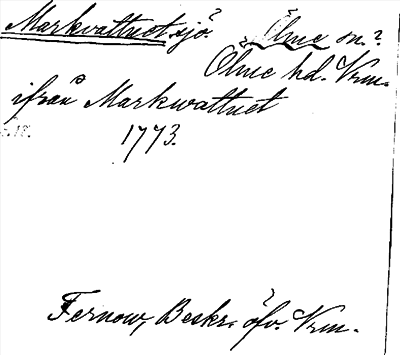 Markvattnet, sjö? Ölme sn.?
Ölme hd. Vrm.
ifrån Markwattnet
s. 18.
1773.
Fernow, Beskr. öfv. Vrm.